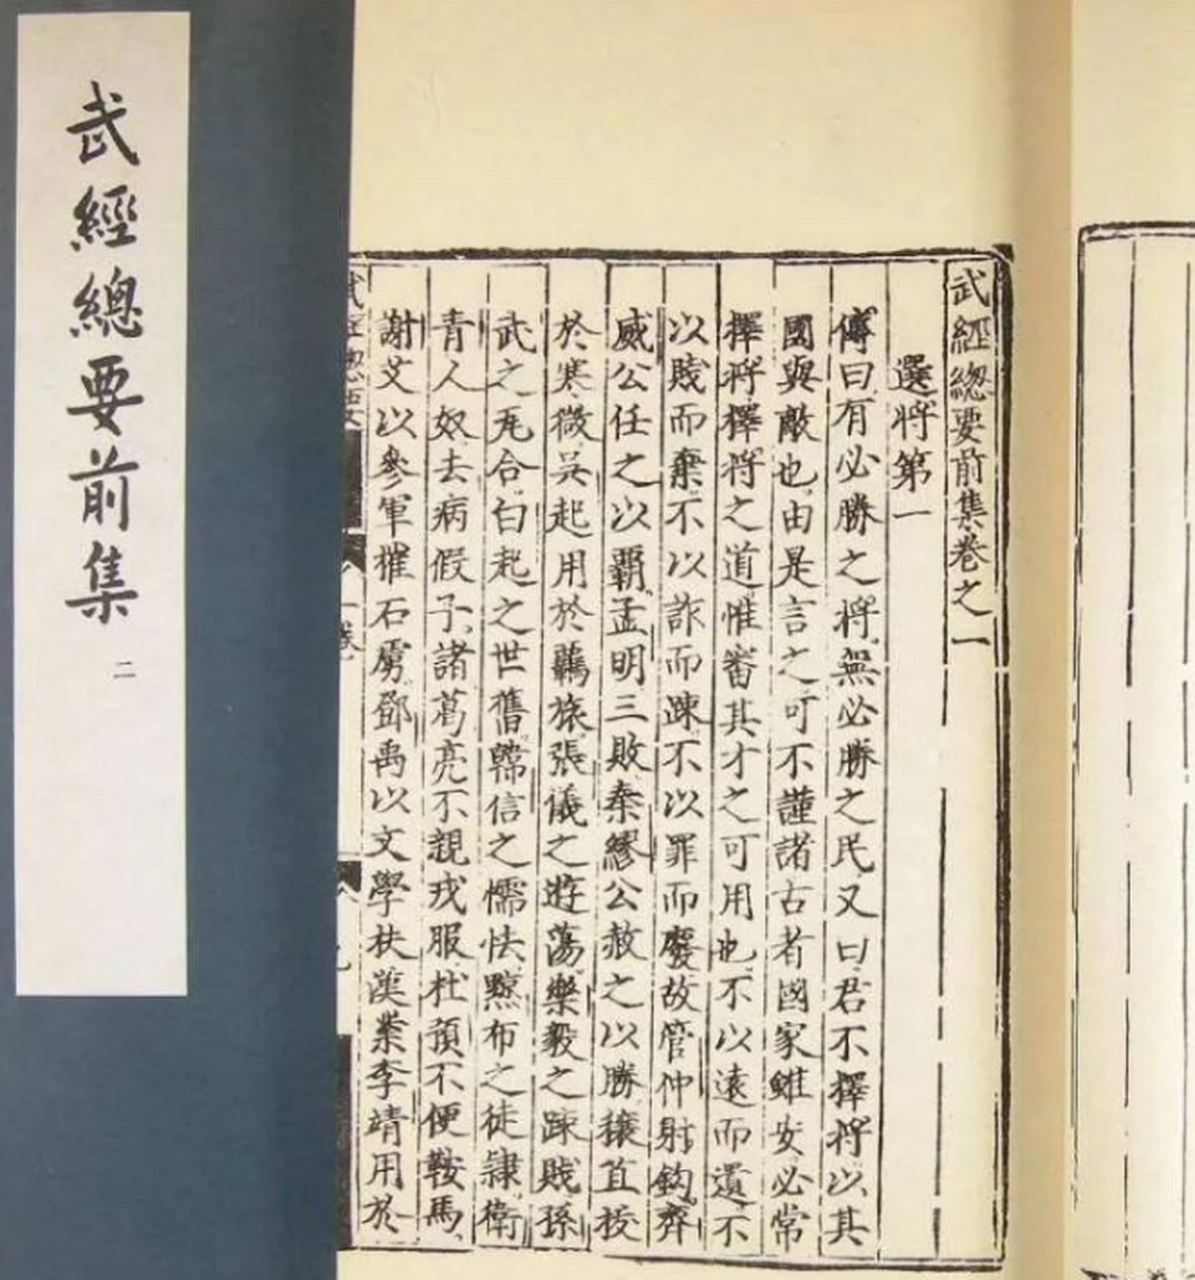 武經總要前集
二
武經總要前集卷之一
選將第一
傳曰有必勝之將無必勝之民又曰君不擇將以其
國與敵也由是言之可不謹諸古者國家雖安必常
擇將擇將之道惟審其才之可用也不以遠而遺不
以賤而棄不以詐而踈不以罪而廢故管仲射鈎齊
威公任之以霸孟明三敗秦繆公赦之以勝穰苴拔
於寒微吳起用於羈旅張儀之遊蕩樂毅之踈賤孫
武之𠒇合白起之世舊韓信之懦怯黥布之徒隸衛
青人奴去病假子諸葛亮不親戎服杜預不便鞍馬
謝艾以參軍摧石虜鄧禹以文學扶漢業李靖用於
武經總要
一卷